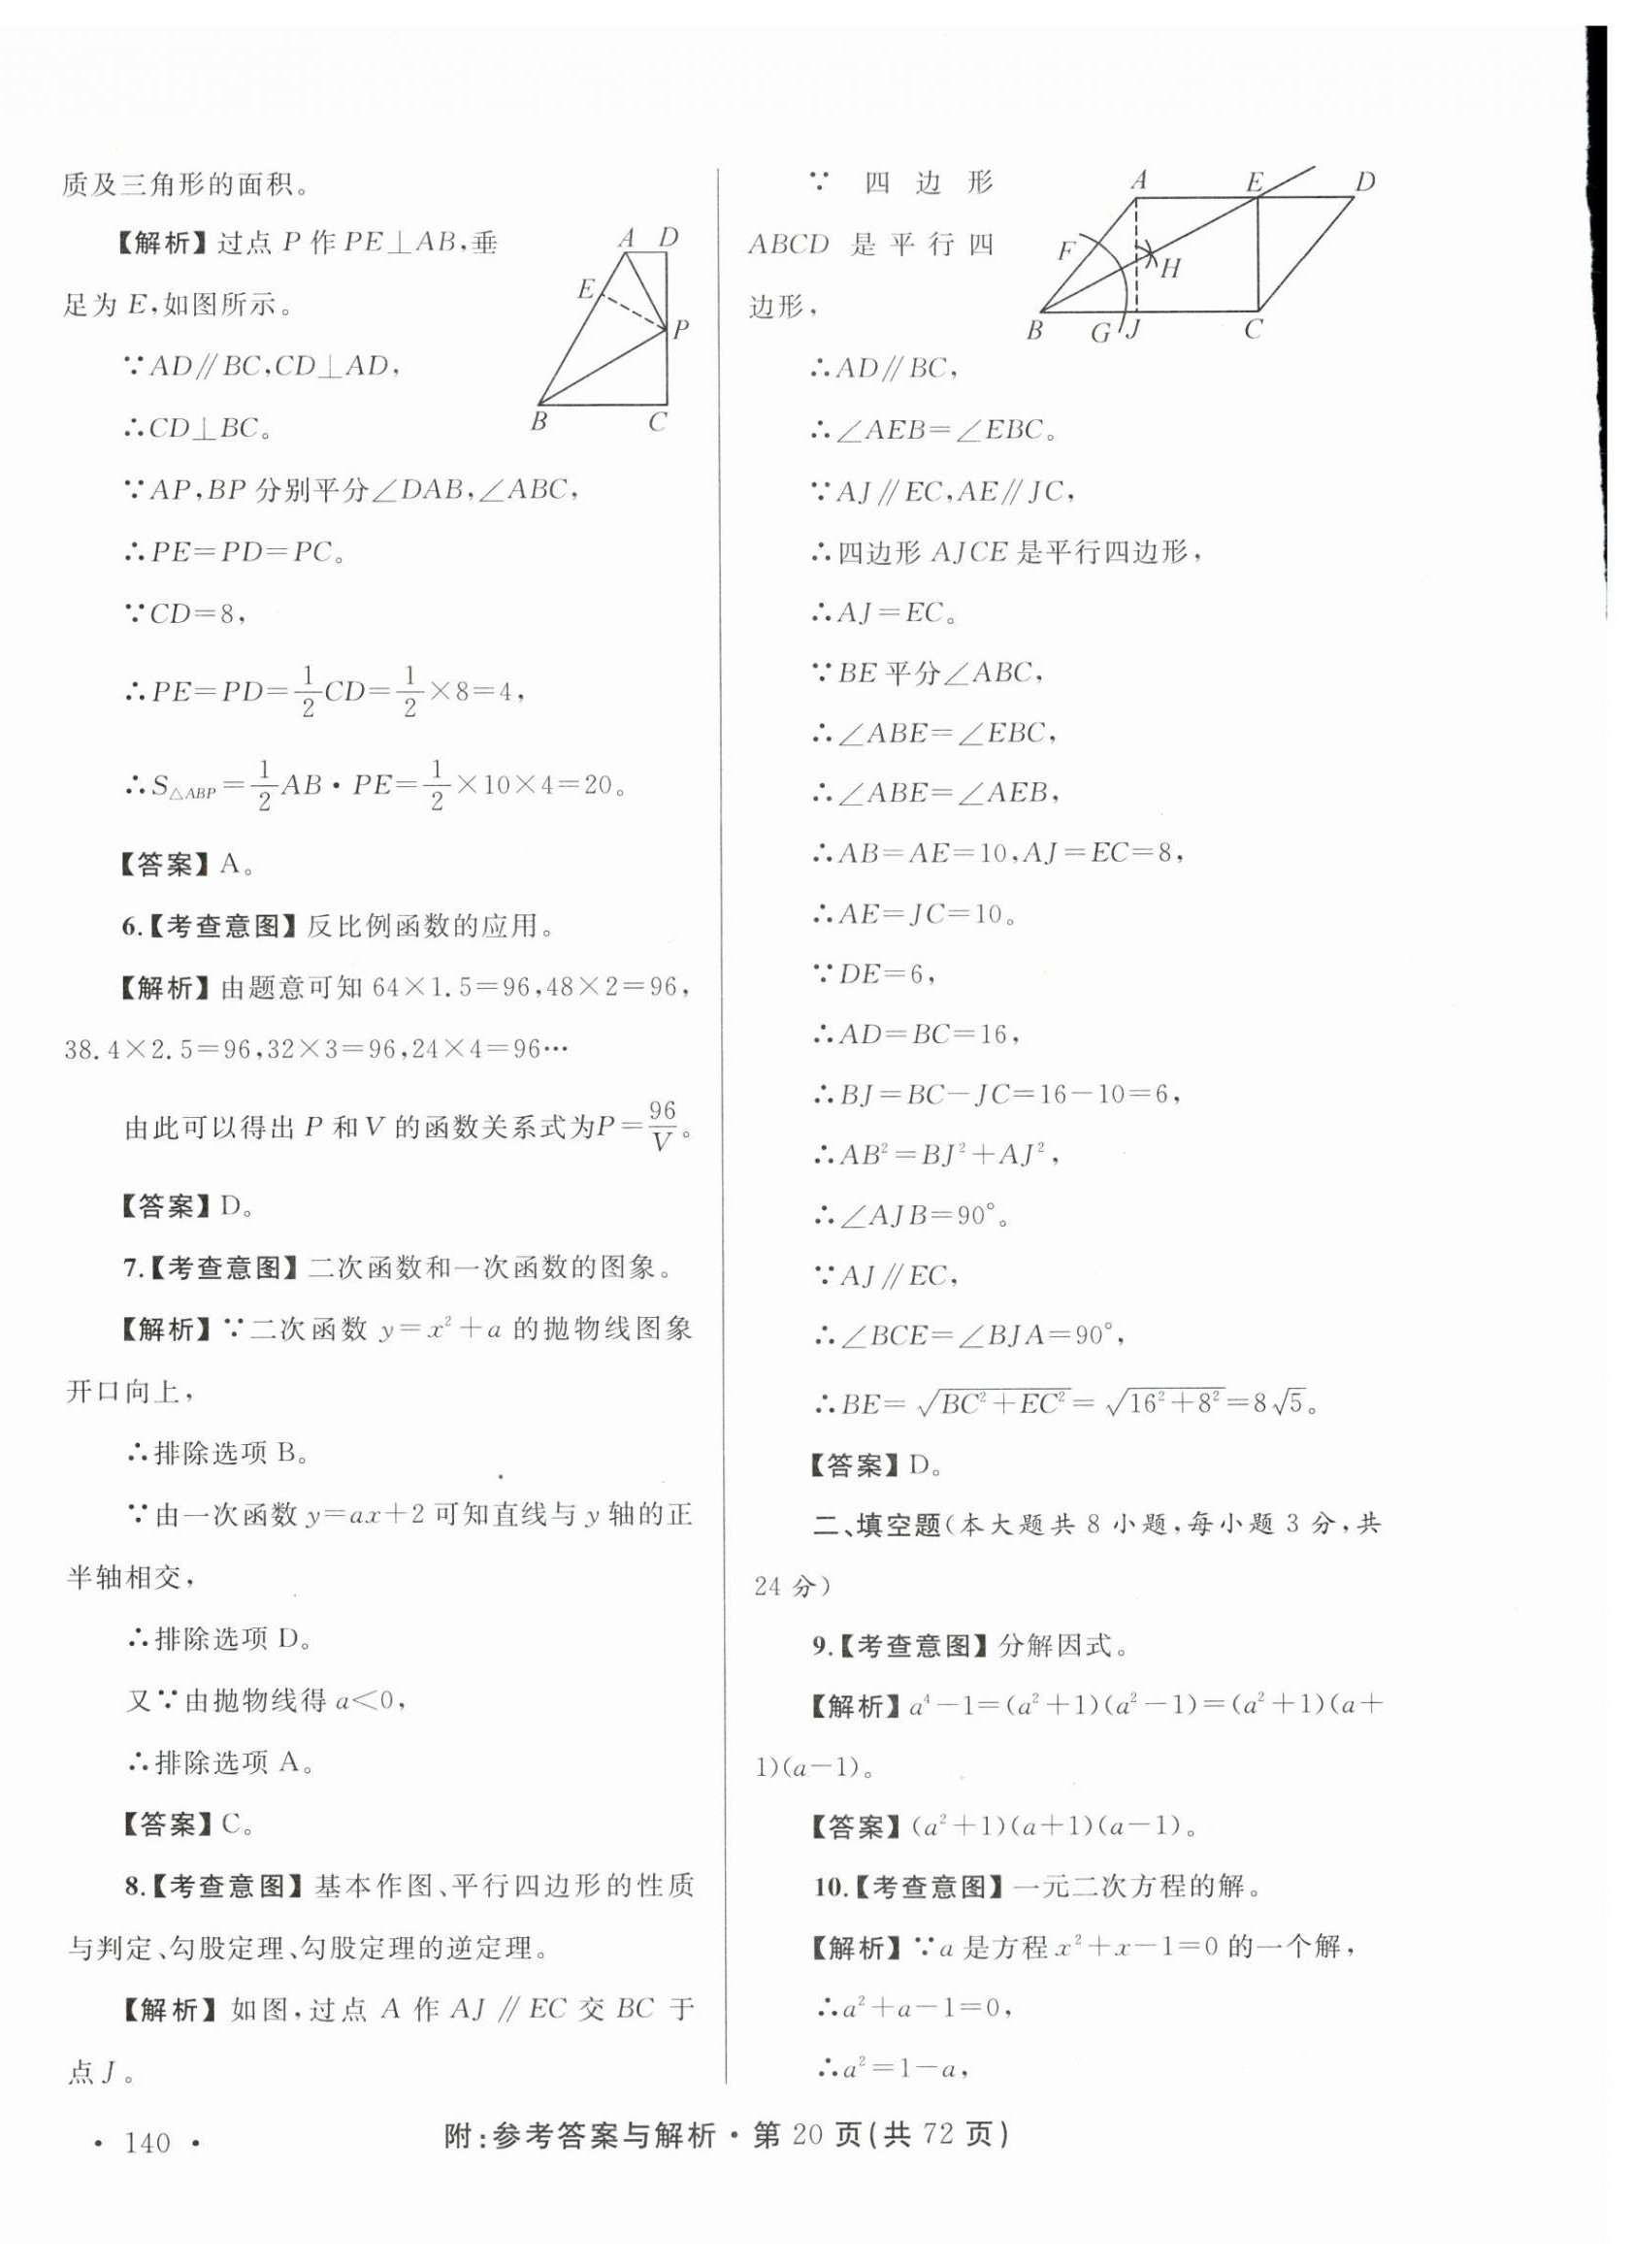 质及三角形的面积。
【解析】过点 P 作 PE⊥AB,垂
足为 E,如图所示。
∵AD∥BC,CD⊥AD,
∴CD⊥BC。
∵AP,BP 分别平分∠DAB,∠ABC,
∴PE=PD=PC。
∵CD=8,
∴PE=PD=1/2CD=1/2×8=4,
∴S△ABP=1/2AB·PE=1/2×10×4=20。
【答案】A。
6.【考查意图】反比例函数的应用。
【解析】由题意可知 64×1.5=96,48×2=96,
38.4×2.5=96,32×3=96,24×4=96…
由此可以得出 P 和 V 的函数关系式为P=96/V。
【答案】D。
7.【考查意图】二次函数和一次函数的图象。
【解析】∵二次函数 y=x²+a 的抛物线图象
开口向上,
∴排除选项 B。
∵由一次函数 y=ax+2 可知直线与 y 轴的正
半轴相交,
∴排除选项 D。
又∵由抛物线得 a<0,
∴排除选项 A。
【答案】C。
8.【考查意图】基本作图、平行四边形的性质
与判定、勾股定理、勾股定理的逆定理。
【解析】如图,过点 A 作 AJ∥EC 交 BC 于
点 J。
A D
E
P
B C
∵ 四边形
ABCD 是平行四
边形,
A E D
F
H
B G J C
∴AD∥BC,
∴∠AEB=∠EBC。
∵AJ∥EC,AE∥JC,
∴四边形 AJCE 是平行四边形,
∴AJ=EC。
∵BE 平分∠ABC,
∴∠ABE=∠EBC,
∴∠ABE=∠AEB,
∴AB=AE=10,AJ=EC=8,
∴AE=JC=10。
∵DE=6,
∴AD=BC=16,
∴BJ=BC-JC=16-10=6,
∴AB²=BJ²+AJ²,
∴∠AJB=90°。
∵AJ∥EC,
∴∠BCE=∠BJA=90°,
∴BE=√(BC²+EC²)=√(16²+8²)=8√5。
【答案】D。
二、填空题(本大题共 8 小题,每小题 3 分,共
24 分)
9.【考查意图】分解因式。
【解析】a⁴-1=(a²+1)(a²-1)=(a²+1)(a+
1)(a-1)。
【答案】(a²+1)(a+1)(a-1)。
10.【考查意图】一元二次方程的解。
【解析】∵a 是方程 x²+x-1=0 的一个解,
∴a²+a-1=0,
∴a²=1-a,
· 140 ·
附:参考答案与解析·第 20 页(共 72 页)